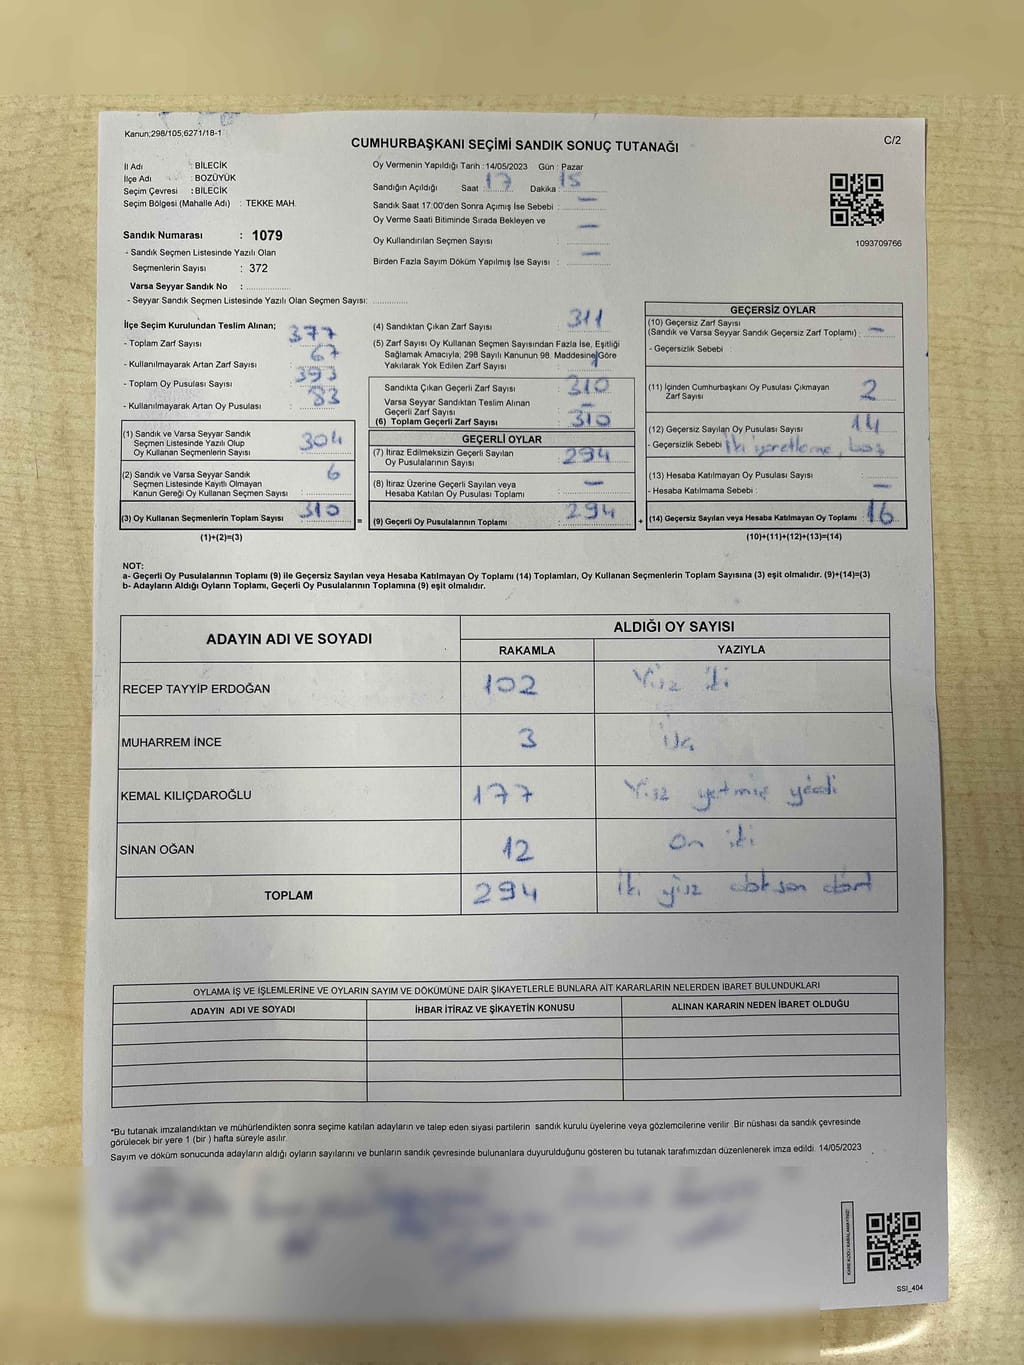 Kanun;298/105;6271/18-1
C/2
CUMHURBAŞKANI SEÇİMİ SANDIK SONUÇ TUTANAĞI
İl Adı : BİLECİK
İlçe Adı : BOZÜYÜK
Seçim Çevresi : BİLECİK
Seçim Bölgesi (Mahalle Adı) : TEKKE MAH.
Sandık Numarası : 1079
- Sandık Seçmen Listesinde Yazılı Olan
Seçmenlerin Sayısı : 372
Varsa Seyyar Sandık No :
- Seyyar Sandık Seçmen Listesinde Yazılı Olan Seçmen Sayısı:
Oy Vermenin Yapıldığı Tarih :14/05/2023 Gün : Pazar
Sandığın Açıldığı Saat 17 Dakika : 15
Sandık Saat 17:00'den Sonra Açımış İse Sebebi : —
Oy Verme Saati Bitiminde Sırada Bekleyen ve
Oy Kullandırılan Seçmen Sayısı : —
Birden Fazla Sayım Döküm Yapılmış İse Sayısı : —
1093709766
İlçe Seçim Kurulundan Teslim Alınan;
- Toplam Zarf Sayısı : 377
- Kullanılmayarak Artan Zarf Sayısı : 67
- Toplam Oy Pusulası Sayısı : 393
- Kullanılmayarak Artan Oy Pusulası : 83
(1) Sandık ve Varsa Seyyar Sandık
Seçmen Listesinde Yazılı Olup
Oy Kullanan Seçmenlerin Sayısı : 304
(2) Sandık ve Varsa Seyyar Sandık
Seçmen Listesinde Kayıtlı Olmayan
Kanun Gereği Oy Kullanan Seçmen Sayısı : 6
(3) Oy Kullanan Seçmenlerin Toplam Sayısı : 310
(1)+(2)=(3)
(4) Sandıktan Çıkan Zarf Sayısı : 311
(5) Zarf Sayısı Oy Kullanan Seçmen Sayısından Fazla İse, Eşitliği
Sağlamak Amacıyla; 298 Sayılı Kanunun 98. Maddesine Göre
Yakılarak Yok Edilen Zarf Sayısı : 1
Sandıkta Çıkan Geçerli Zarf Sayısı : 310
Varsa Seyyar Sandıktan Teslim Alınan
Geçerli Zarf Sayısı : —
(6) Toplam Geçerli Zarf Sayısı : 310
GEÇERLİ OYLAR
(7) İtiraz Edilmeksizin Geçerli Sayılan
Oy Pusulalarının Sayısı : 294
(8) İtiraz Üzerine Geçerli Sayılan veya
Hesaba Katılan Oy Pusulası Toplamı : —
= (9) Geçerli Oy Pusulalarının Toplamı : 294
GEÇERSİZ OYLAR
(10) Geçersiz Zarf Sayısı
(Sandık ve Varsa Seyyar Sandık Geçersiz Zarf Toplamı) : —
- Geçersizlik Sebebi :
(11) İçinden Cumhurbaşkanı Oy Pusulası Çıkmayan
Zarf Sayısı : 2
(12) Geçersiz Sayılan Oy Pusulası Sayısı : 14
- Geçersizlik Sebebi : İki işaretleme, boş
(13) Hesaba Katılmayan Oy Pusulası Sayısı :
- Hesaba Katılmama Sebebi : —
+ (14) Geçersiz Sayılan veya Hesaba Katılmayan Oy Toplamı : 16
(10)+(11)+(12)+(13)=(14)
NOT:
a- Geçerli Oy Pusulalarının Toplamı (9) ile Geçersiz Sayılan veya Hesaba Katılmayan Oy Toplamı (14) Toplamları, Oy Kullanan Seçmenlerin Toplam Sayısına (3) eşit olmalıdır. (9)+(14)=(3)
b- Adayların Aldığı Oyların Toplamı, Geçerli Oy Pusulalarının Toplamına (9) eşit olmalıdır.
ADAYIN ADI VE SOYADI
ALDIĞI OY SAYISI
RAKAMLA YAZIYLA
RECEP TAYYİP ERDOĞAN 102 Yüz iki
MUHARREM İNCE 3 üç
KEMAL KILIÇDAROĞLU 177 Yüz yetmiş yedi
SİNAN OĞAN 12 On iki
TOPLAM 294 İki yüz doksan dört
OYLAMA İŞ VE İŞLEMLERİNE VE OYLARIN SAYIM VE DÖKÜMÜNE DAİR ŞİKAYETLERLE BUNLARA AİT KARARLARIN NELERDEN İBARET BULUNDUKLARI
ADAYIN ADI VE SOYADI İHBAR İTİRAZ VE ŞİKAYETİN KONUSU ALINAN KARARIN NEDEN İBARET OLDUĞU
*Bu tutanak imzalandıktan ve mühürlendikten sonra seçime katılan adayların ve talep eden siyasi partilerin sandık kurulu üyelerine veya gözlemcilerine verilir. Bir nüshası da sandık çevresinde
görülecek bir yere 1 (bir ) hafta süreyle asılır.
Sayım ve döküm sonucunda adayların aldığı oyların sayılarını ve bunların sandık çevresinde bulunanlara duyurulduğunu gösteren bu tutanak tarafımızdan düzenlenerek imza edildi. 14/05/2023
KARE KODU KARALAMAYINIZ!
SSI_404